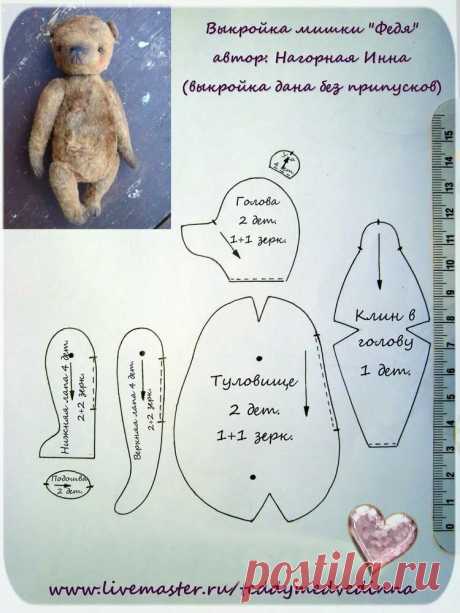 Выкройка мишки "Федя"
автор: Нагорная Инна
(выкройка дана без припусков)
Ухо
Голова
2 дет.
1+1 зерк.
Клин в
голову
1 дет.
Туловище
2 дет.
1+1 зерк.
Нижняя лапа 4 дет.
2+2 зерк.
Верхняя лапа 4 дет.
2+2 зерк.
Подошва
2 дет.
15
14
13
12
11
10
9
8
7
6
5
4
3
2
1
0
postila.ru